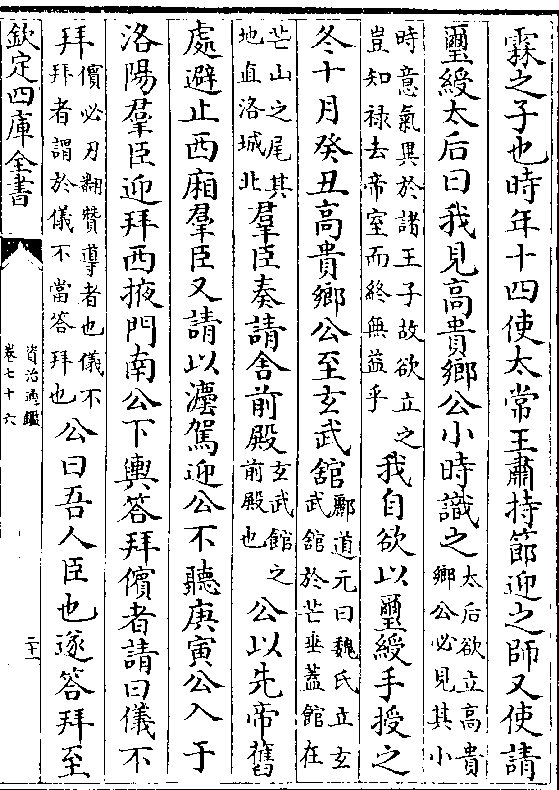 霖之子也時年十四使太常王肅持節迎之師又使請
璽綬太后曰我見高貴鄉公小時識之太后欲立高貴鄉公必見其小
時意氣異於諸王子故欲立之豈知禄去帝室而終無益乎我自欲以璽綬手授之
冬十月癸丑高貴鄉公至玄武舘酈道元曰魏氏立玄武舘於芒垂蓋館在
芒山之尾其地直洛城北羣臣奏請舍前殿玄武館之前殿也公以先帝舊
處避止西廂羣臣又請以灋駕迎公不聽庚寅公入于
洛陽羣臣迎拜西掖門南公下輿答拜儐者請曰儀不
拜儐必刃翻贊導者也儀不拜者謂於儀不當答拜也公曰吾人臣也遂答拜至
欽定四庫全書
資治通鑑
卷七十六
二十一